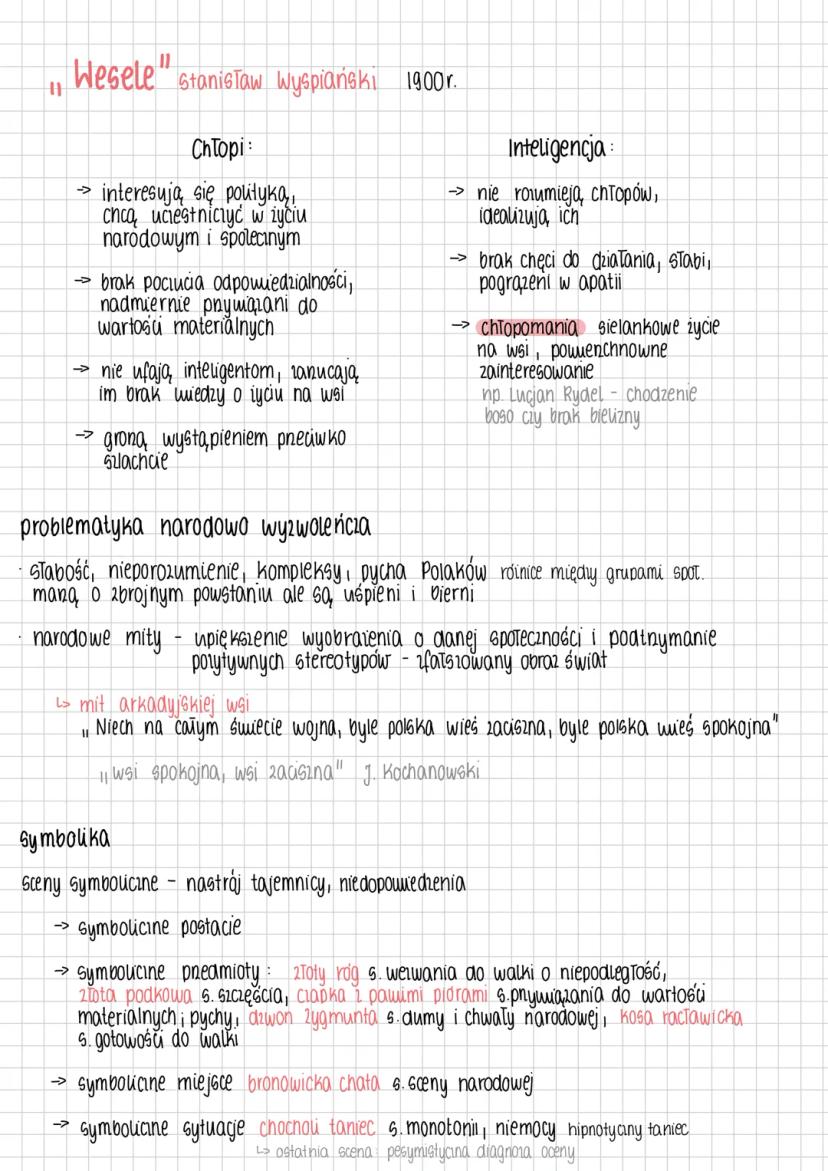 „Wesele" Stanisław Wyspiański 1900r.
Chłopi:
→ interesują się polityką,
chcą uczestniczyć w życiu
narodowym i społecznym
→ brak poczucia odpowiedzialności,
nadmiernie przywiązani do
wartości materialnych
→ nie ufają inteligentom, zarzucają
im brak wiedzy o życiu na wsi
→ grożą wystąpieniem przeciwko
szlachcie
Inteligencja:
→ nie rozumieją chłopów,
idealizują ich
→ brak chęci do działania, słabi,
pogrążeni w apatii
→ chłopomania sielankowe życie
na wsi, powierzchnowne
zainteresowanie
np. Lucjan Rydel - chodzenie
boso czy brak bielizny
problematyka narodowo wyzwoleńcza
· słabość, nieporozumienie, kompleksy, pycha Polaków różnice między grupami społ.
marzą o zbrojnym powstaniu ale są uśpieni i bierni
· narodowe mity - upiększenie wyobrażenia o danej społeczności i podtrzymanie
pozytywnych stereotypów - zfałszowany obraz świat
↳ mit arkadyjskiej wsi
„Niech na całym świecie wojna, byle polska wieś zaciszna, byle polska wieś spokojna"
„wsi spokojna, wsi zaciszna" J. Kochanowski
symbolika
sceny symboliczne - nastrój tajemnicy, niedopowiedzenia
→ symboliczne postacie
→ symboliczne przedmioty: złoty róg s. wezwania do walki o niepodległość,
złota podkowa s. szczęścia, czapka z pawimi piórami s. przywiązania do wartości
materialnych i pychy, dzwon Zygmunta s. dumy i chwały narodowej, kosa racławicka
s. gotowości do walki
→ symboliczne miejsce bronowicka chata s. sceny narodowej
→ symboliczne sytuacje chocholi taniec s. monotonii, niemocy hipnotyczny taniec
↳ ostatnia scena: pesymistyczna diagnoza oceny